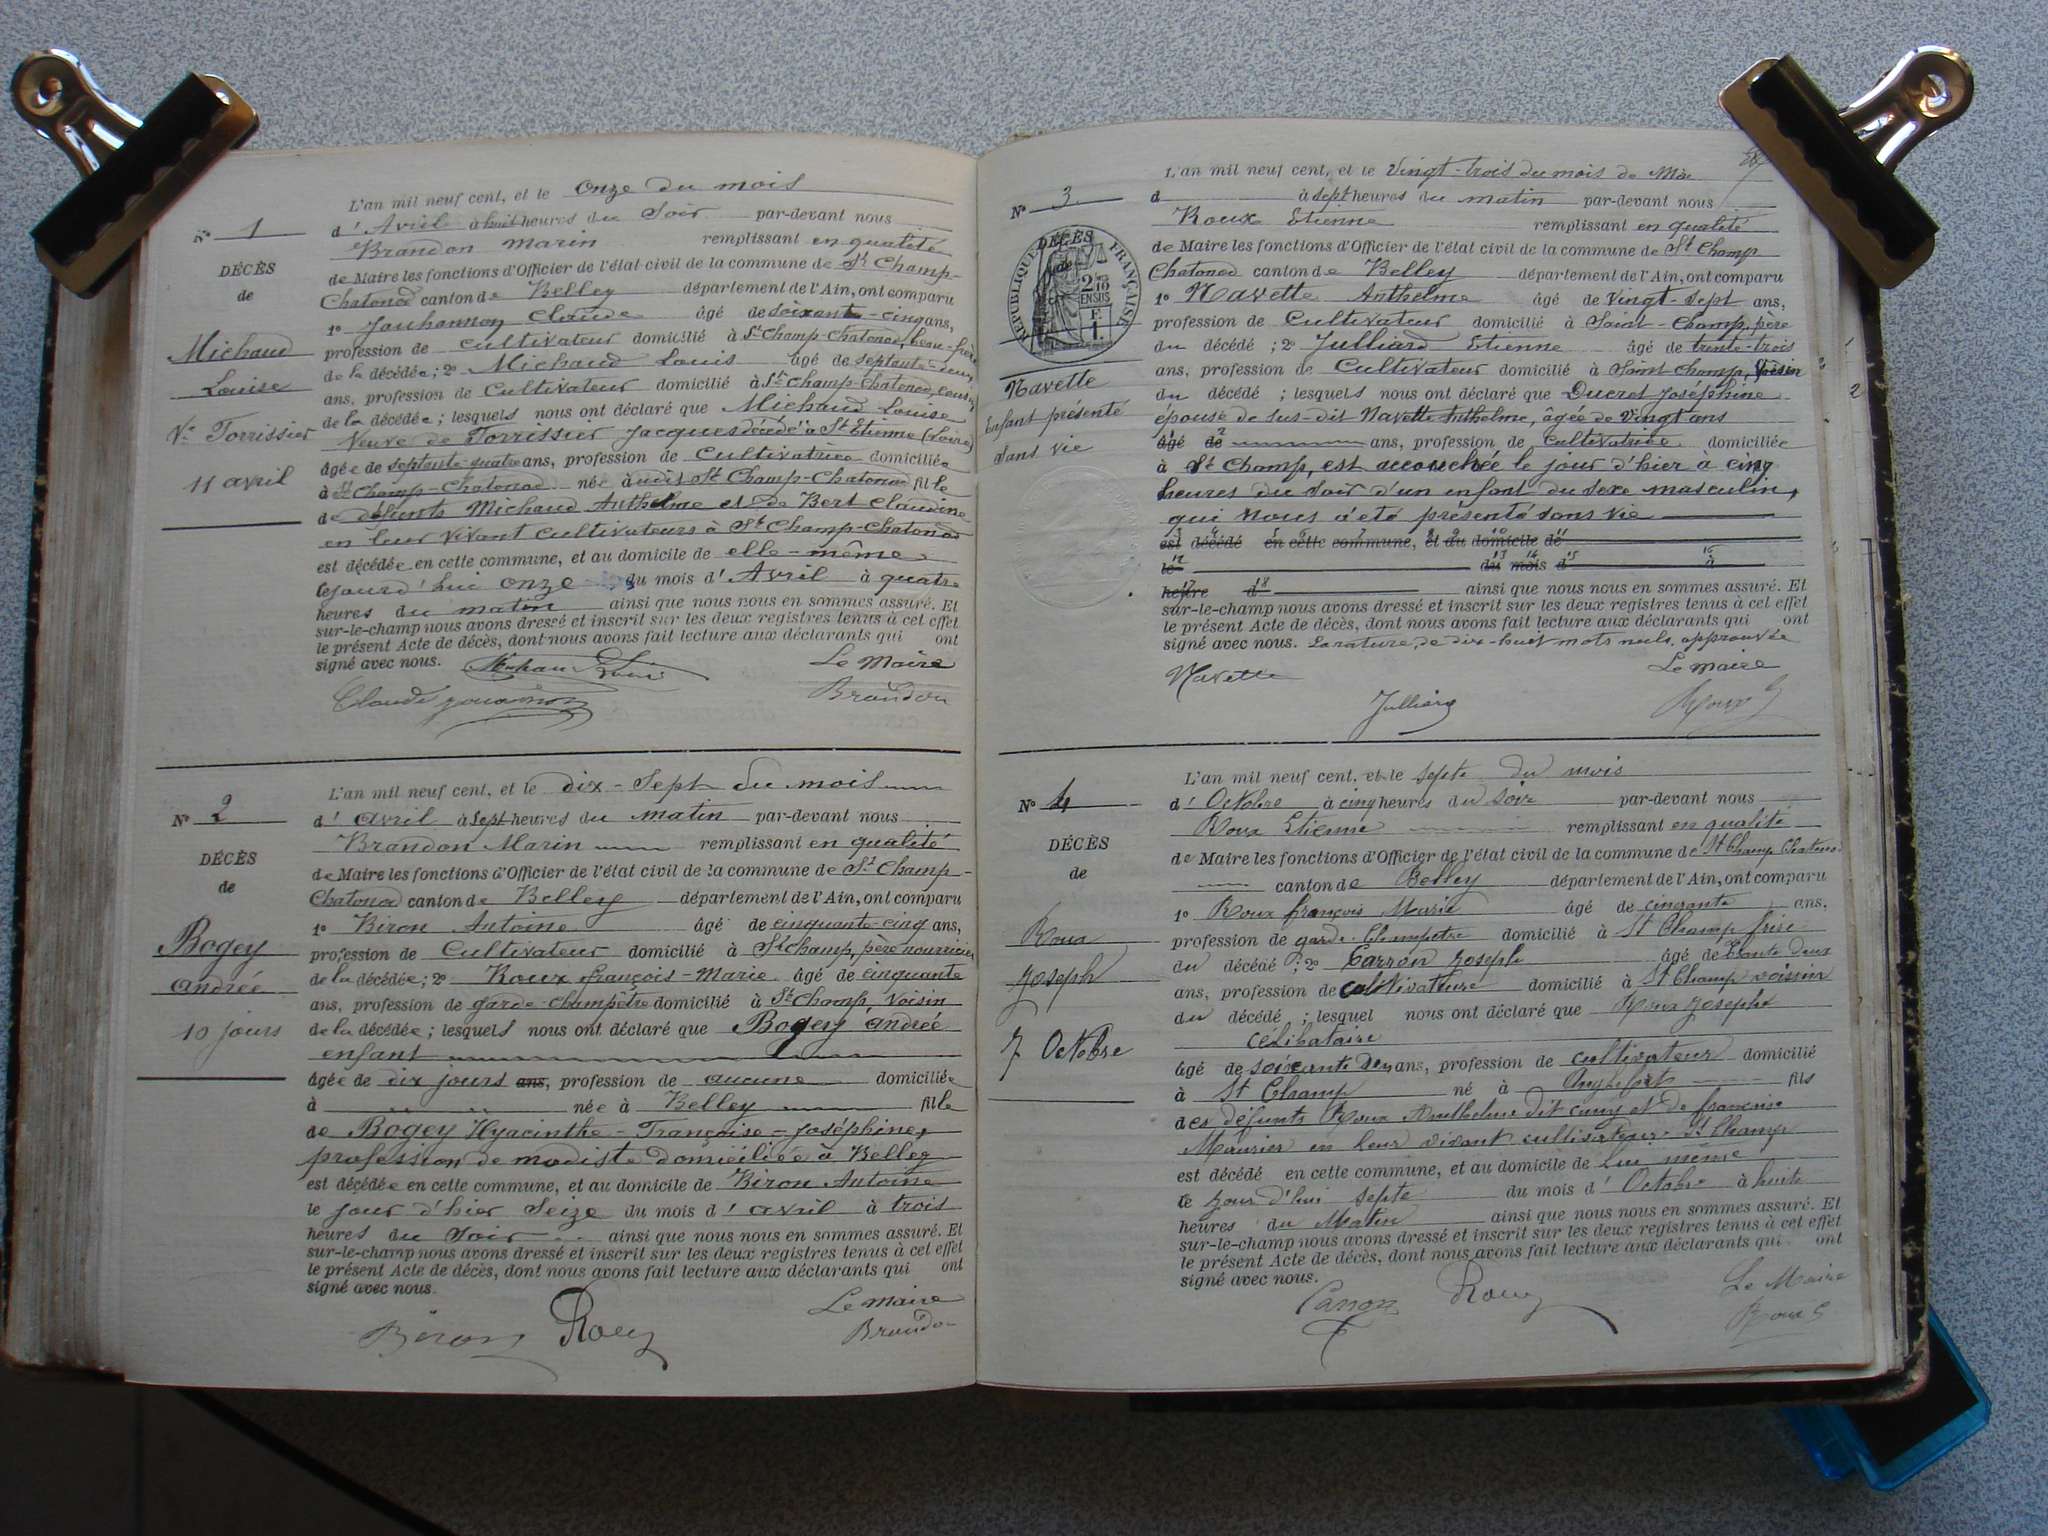 L'an mil neuf cent, et le onze du mois
N° 1 d'Avril à huit heures du Soir par-devant nous
Brandon Marin remplissant en qualité
DÉCÈS de Maire les fonctions d'Officier de l'état civil de la commune de St Champ-
de Chatonod canton de Belley département de l'Ain, ont comparu
1° Jouhannon Claude âgé de soixante-cinq ans,
Michaud profession de Cultivateur domicilié à St Champ-Chatonod, beau-frère
de la décédée; 2° Michaud Louis âgé de septante-deux
Louise ans, profession de Cultivateur domicilié à St Champ-Chatonod, cousin
de la décédée; lesquels nous ont déclaré que Michaud Louise
Ve Torrissier Veuve de Torrissier Jacques décédé à St Etienne (Loire)
âgée de septante-quatre ans, profession de Cultivatrice domiciliée
11 avril à St Champ-Chatonod née audit St Champ-Chatonod fille
de défunts Michaud Anthelme et de Bert Claudine
en leur vivant cultivateurs à St Champ-Chatonod
est décédée en cette commune, et au domicile de elle-même
cejourd'hui onze du mois d'Avril à quatre
heures du matin ainsi que nous nous en sommes assuré. Et
sur-le-champ nous avons dressé et inscrit sur les deux registres tenus à cet effet
le présent Acte de décès, dont nous avons fait lecture aux déclarants qui ont
signé avec nous. Michaud Louis Le Maire
Claude jouannon Brandon
L'an mil neuf cent, et le dix-Sept du mois
N° 2 d'avril à Sept heures du matin par-devant nous
Brandon Marin remplissant en qualité
DÉCÈS de Maire les fonctions d'Officier de l'état civil de la commune de St Champ-
de Chatonod canton de Belley département de l'Ain, ont comparu
1° Biron Antoine âgé de cinquante-cinq ans,
Bogey profession de Cultivateur domicilié à St Champ, père nourricier
de la décédée; 2° Roux françois-Marie âgé de cinquante
andrée ans, profession de garde-champêtre domicilié à St Champ, Voisin
10 jours de la décédée; lesquels nous ont déclaré que Bogey Andrée
enfant
âgée de dix jours ans, profession de aucune domiciliée
à née à Belley fille
de Bogey Hyacinthe-Françoise-Joséphine,
profession de modiste domiciliée à Belley
est décédée en cette commune, et au domicile de Biron Antoine
le jour d'hier Seize du mois d'avril à trois
heures du Soir ainsi que nous nous en sommes assuré. Et
sur-le-champ nous avons dressé et inscrit sur les deux registres tenus à cet effet
le présent Acte de décès, dont nous avons fait lecture aux déclarants qui ont
signé avec nous. Le Maire
Biron Roux Brandon
L'an mil neuf cent, et le Vingt-trois du mois de Mai
N° 3 d à sept heures du matin par-devant nous
Roux Etienne remplissant en qualité
DÉCÈS de Maire les fonctions d'Officier de l'état civil de la commune de St Champ
de Chatonod canton de Belley département de l'Ain, ont comparu
RÉPUBLIQUE FRANÇAISE
2/10 EN SUS
F. 1.
1° Navette Anthelme âgé de Vingt-sept ans,
profession de Cultivateur domicilié à Saint-Champ, père
du décédé; 2° Julliard Etienne âgé de trente-trois
ans, profession de Cultivateur domicilié à Saint Champ, Voisin
Navette du décédé; lesquels nous ont déclaré que Ducret Joséphine
Enfant présenté épouse de sus-dit Navette Anthelme, âgée de Vingt ans
sans vie âgé de ans, profession de Cultivatrice domiciliée
à St Champ, est accouchée le jour d'hier à cinq
heures du soir d'un enfant du sexe masculin,
qui nous a été présenté sans vie
est décédé en cette commune, et au domicile de
le du mois d à
heure d ainsi que nous nous en sommes assuré. Et
sur-le-champ nous avons dressé et inscrit sur les deux registres tenus à cet effet
le présent Acte de décès, dont nous avons fait lecture aux déclarants qui ont
signé avec nous. La rature de dix-huit mots nuls, approuvée
Navette Le Maire
Julliard Roux
L'an mil neuf cent, et le septe du mois
N° 4 d'Octobre à cinq heures du soir par-devant nous
Roux Etienne remplissant en qualité
DÉCÈS de Maire les fonctions d'Officier de l'état civil de la commune de St Champ Chatonod
de canton de Belley département de l'Ain, ont comparu
1° Roux françois Marie âgé de cinquante ans,
Roux profession de garde Champetre domicilié à St Champ frère
du décédé; 2° Carron Joseph âgé de trante deux
Joseph ans, profession de cultivateure domicilié à St Champ voisin
du décédé; lesquel nous ont déclaré que Roux Joseph
7 Octobre célibataire
âgé de soixante Deux ans, profession de cultivateur domicilié
à St Champ né à Anglefort fils
des défunts Roux Anthelme dit cuny et de françoise
Meunier en leur vivant cultivateurs St Champ
est décédé en cette commune, et au domicile de Lui même
le jour d'hui septe du mois d'Octobre à huite
heures du Matin ainsi que nous nous en sommes assuré. Et
sur-le-champ nous avons dressé et inscrit sur les deux registres tenus à cet effet
le présent Acte de décès, dont nous avons fait lecture aux déclarants qui ont
signé avec nous. Le Maire
Carron Roux Roux